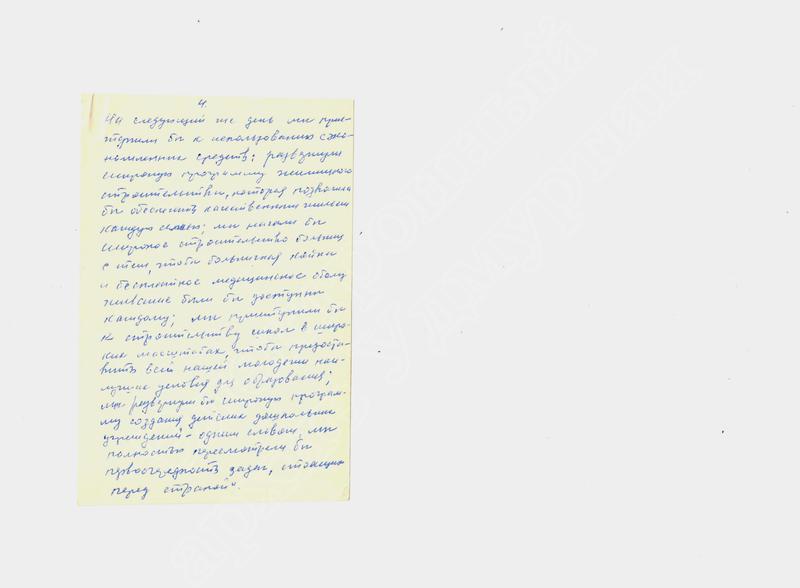 4.
На следующий же день мы прис-
тупили бы к использованию сэко-
номленных средств: развернули
широкую программу жилищного
строительства, которая позволила
бы обеспечить качественным жильем
каждую семью; мы начали бы
широкое строительство больниц
с тем, чтобы больничная койка
и бесплатное медицинское обслу-
живание были бы доступны
каждому; мы приступили бы
к строительству школ в широ-
ких масштабах, чтобы предоста-
вить всей нашей молодежи наи-
лучшие условия для образования;
мы развернули бы широкую програм-
му создания детских дошкольных
учреждений – одним словом, мы
полностью пересмотрели бы
первоочередность задач, стоящих
перед страной".